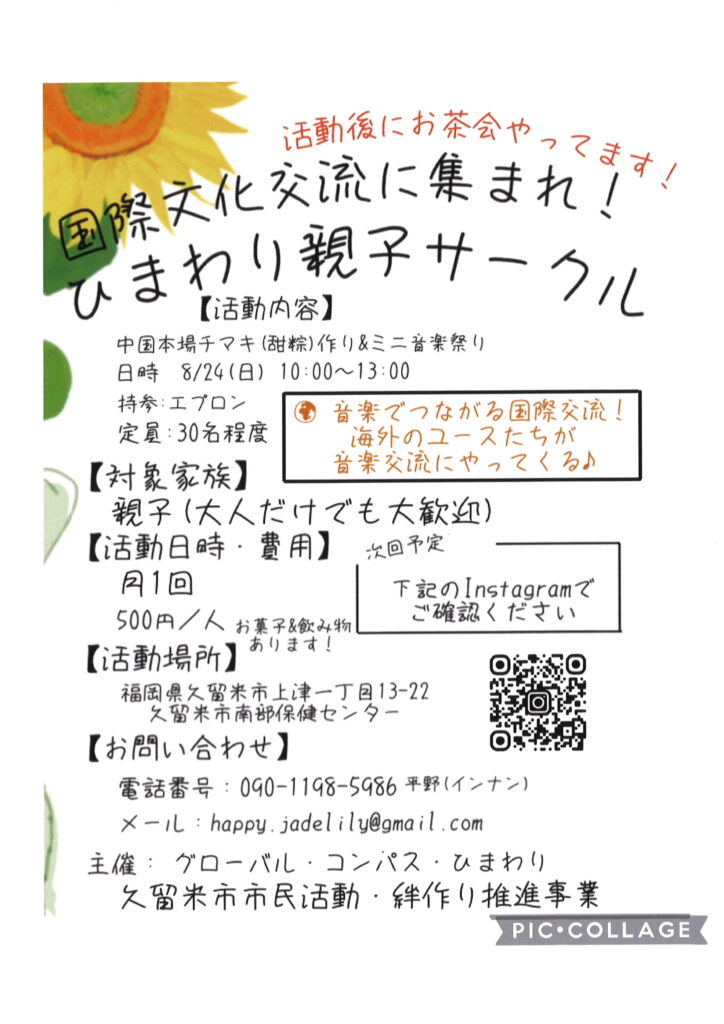 活動後にお茶会やってます！
国際文化交流に集まれ！
ひまわり親子サークル
【活動内容】
中国本場チマキ(甜粽)作り&ミニ音楽祭り
日時 8/24(日) 10:00〜13:00
持参:エプロン
定員:30名程度
音楽でつながる国際交流！
海外のユースたちが
音楽交流にやってくる♪
【対象家族】
親子(大人だけでも大歓迎)
【活動日時・費用】
月1回
500円／人 お菓子&飲み物
あります！
次回予定
下記のInstagramで
ご確認ください
【活動場所】
福岡県久留米市上津一丁目13-22
久留米市南部保健センター
【お問い合わせ】
電話番号：090-1198-5986 平野(インナン)
メール：happy.jadelily@gmail.com
主催： グローバル・コンパス・ひまわり
久留米市市民活動・絆作り推進事業
PIC•COLLAGE